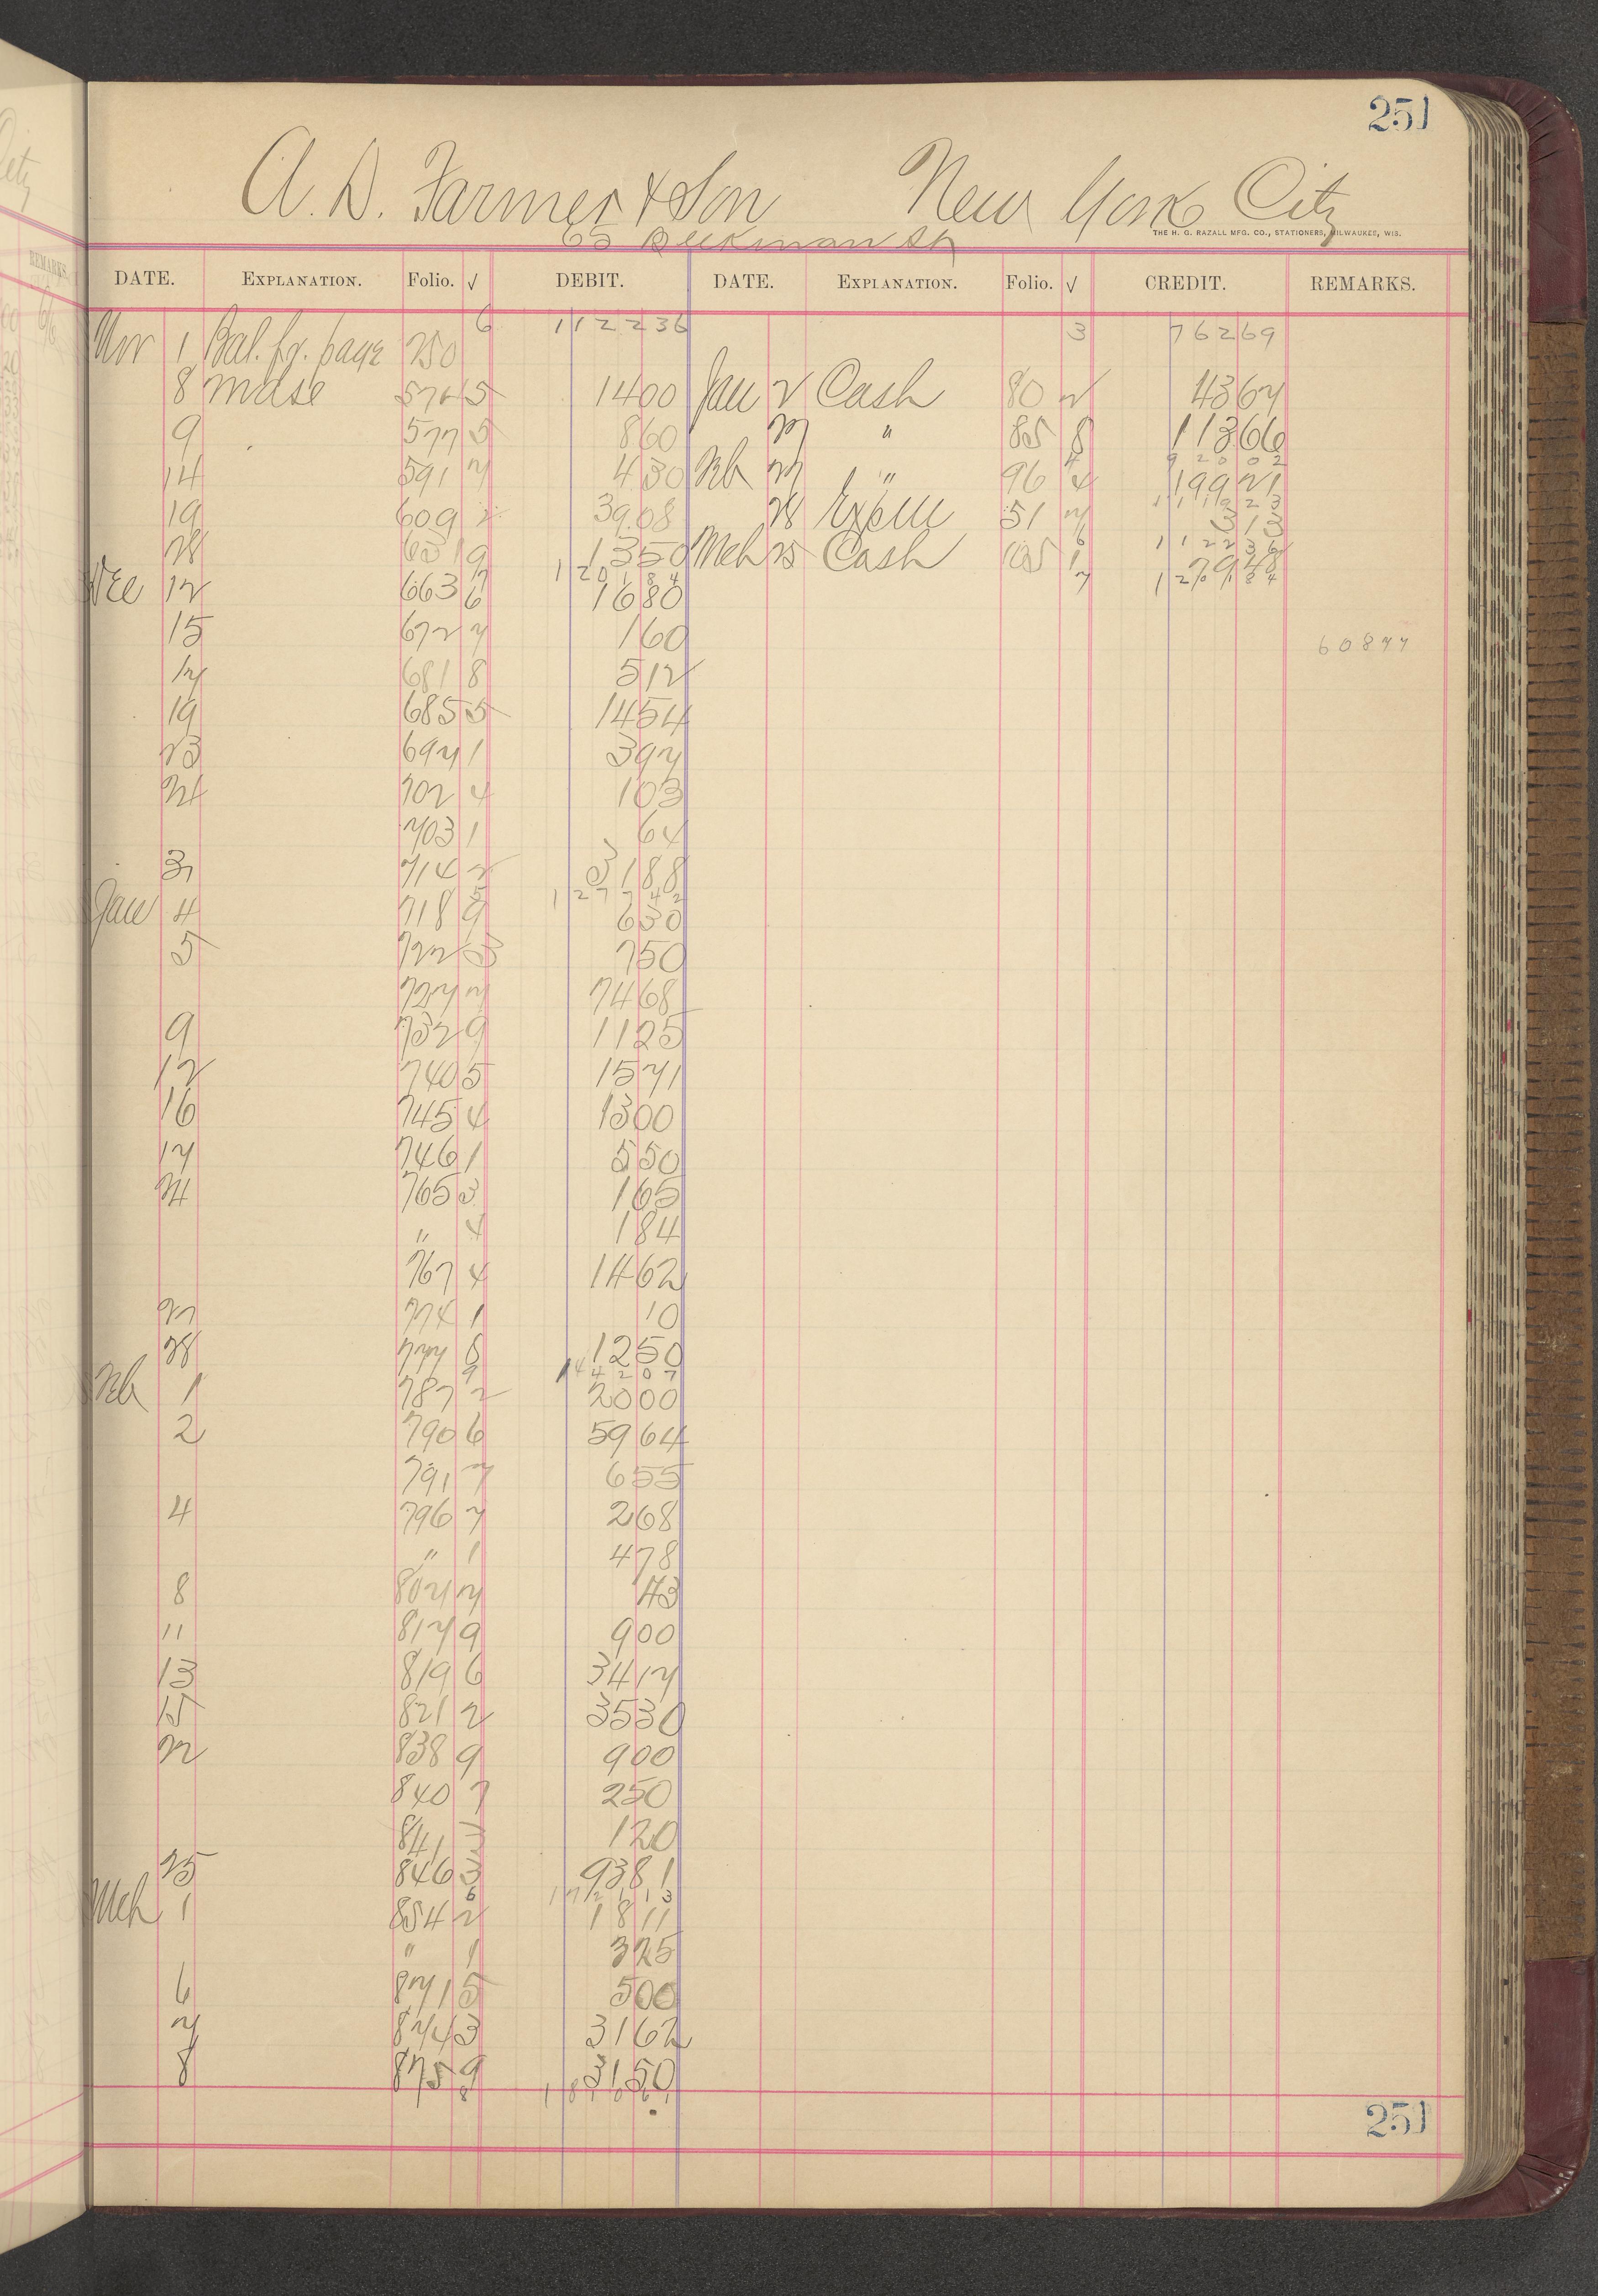 251
A. D. Farmer & Son New York City
65 Beekman St
THE H. G. RAZALL MFG. CO., STATIONERS, MILWAUKEE, WIS.
DATE. EXPLANATION. Folio. √ DEBIT. DATE. EXPLANATION. Folio. √ CREDIT. REMARKS.
Nov 1 Bal. fr. page 250 6 112236 3 76269
8 Mdse 576 5 1400 Jan 2 Cash 80 2 4367
9 577 5 860 27 " 85 8 11366
4 92002
14 591 7 430 Feb 27 " 96 4 19921
111923
19 609 2 3908 28 Expense 51 7 313
6 112236
28 631 9 1350 Mch 25 Cash 105 1 7948
7 120184 7 120184
Dec 12 663 6 1680
15 672 7 160 60877
17 681 8 512
19 685 5 1454
23 697 1 397
24 702 4 103
703 1 64
31 714 2 3188
5 127742
Jan 4 718 9 630
5 722 3 750
727 7 7468
9 732 9 1125
12 740 5 1571
16 745 4 1300
17 746 1 550
24 765 3 165
" 4 184
767 4 1462
27 774 1 10
28 777 8 1250
9 144207
Feb 1 787 2 2000
2 790 6 5964
791 7 655
4 796 7 268
" 1 478
8 807 7 43
11 817 9 900
13 819 6 3417
15 821 2 3530
22 838 9 900
840 7 250
841 3 120
25 846 3 9381
6 172113
Mch 1 854 2 1811
" 1 325
6 871 5 500
7 874 3 3162
8 875 9 3150
8 181061
251